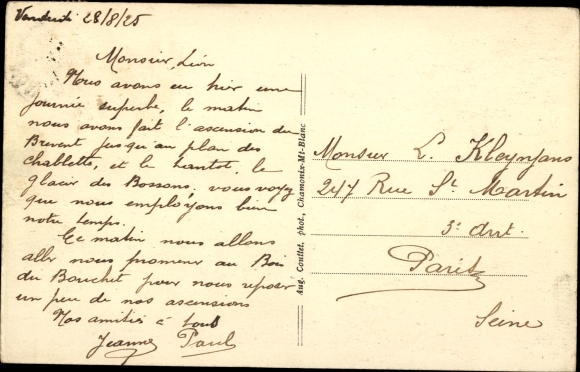 Vendredi 28/8/25
Monsieur, Léon
Nous avons eu hier une
journée superbe, le matin
nous avons fait l'ascension du
Brevent jusqu'au plan des
chablette, et le tantot, le
glacier des Bossons, vous voyez
que nous employons bien
notre temps.
Ce matin nous allons
aller nous promener au Bois
du Bouchet pour nous reposer
un peu de nos ascensions
Nos amitiés à tous
Jeanne Paul
Aug. Couttet, phot., Chamonix-Mt-Blanc
Monsieur L. Kleynjans
247 Rue St. Martin
3e arrt.
Paris
Seine